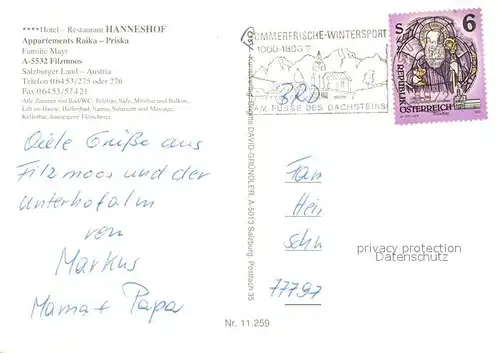 ****Hotel – Restaurant HANNESHOF
Appartements Raika – Priska
Familie Mayr
A-5532 Filzmoos
Salzburger Land – Austria
Telefon 0 64 53 / 275 oder 276
Fax 0 64 53 / 57 4 21
Alle Zimmer mit Bad/WC, Telefon, Safe, Minibar und Balkon,
Lift im Hause, Hallenbad, Sauna, Solarium und Massage,
Kellerbar, hauseigene Fleischerei.
Viele Grüße aus
Filzmoos und der
Unterhofalm
von
Markus
Mama + Papa
SOMMERFRISCHE-WINTERSPORT
AM FUSSE DES DACHSTEINS
BRD
S 6
REPUBLIK
ÖSTERREICH
DAVID-GRÜNDLER, A-5013 Salzburg, Postfach 35
Fam
Hein
Sch
77797
privacy protection
Datenschutz
Nr. 11.259